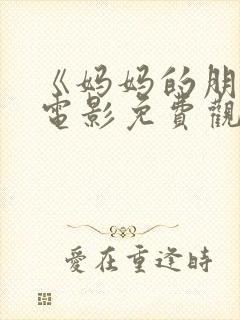 《妈妈的朋
電影免費觀
愛在重逢時